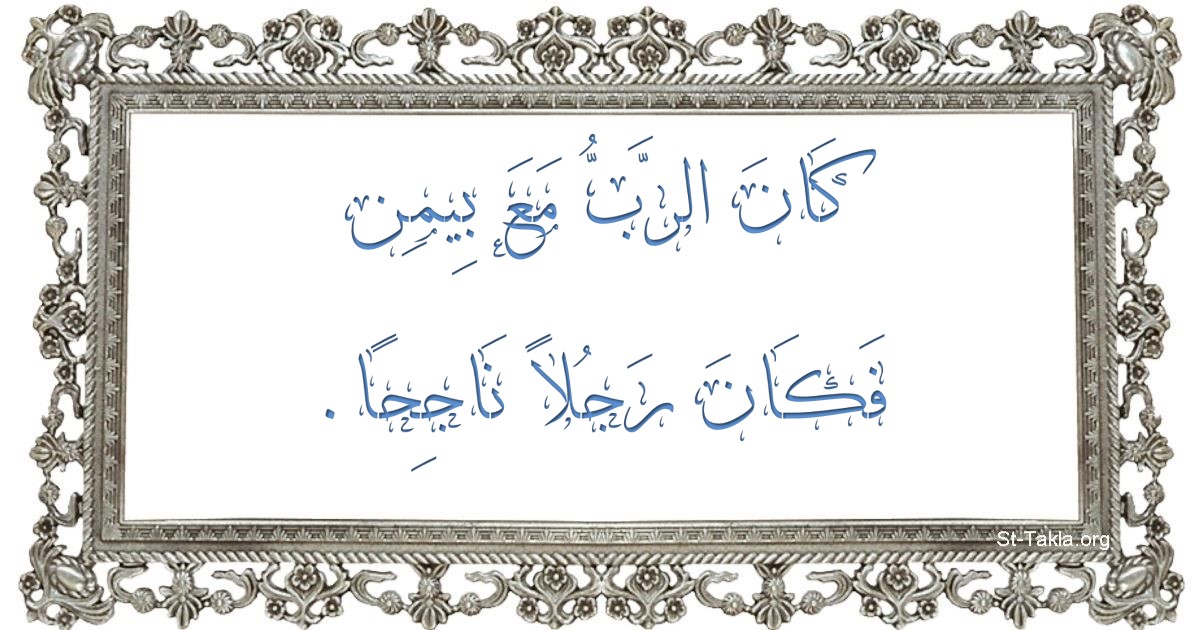 كَانَ الرَّبُّ مَعَ بِيمِن
فَكَانَ رَجُلاً نَاجِحًا .
St-Takla.org